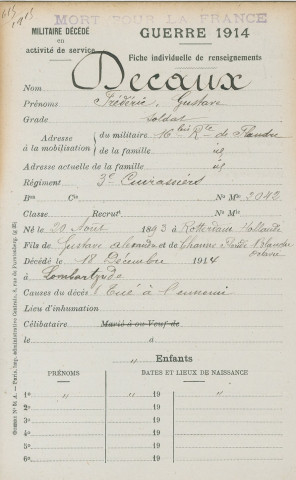 613
1913
MORT POUR LA FRANCE
MILITAIRE DÉCÉDÉ
en
activité de service
GUERRE 1914
Fiche individuelle de renseignements
Nom Decaux
Prénoms Frédéric, Gustave
Grade Soldat
Adresse à la mobilisation du militaire 16 bis Rte de Flandre
de la famille id
Adresse actuelle de la famille id
Régiment 3e Cuirassiers
Bon Cie No Mle 3042
Classe Recrut. No Mle
Né le 20 Août 1893 à Rotterdam Hollande
Fils de Gustave Alexandre et de Blanche
Décédé le 18 Décembre 1914
à Lombartzyde
Causes du décès Tué à l'ennemi
Lieu d'inhumation
Célibataire Marié à ou Veuf de
le à
" Enfants
PRÉNOMS DATES ET LIEUX DE NAISSANCE
1o " " 19 "
2o 19
3o 19
4o 19
5o 19
6o 19